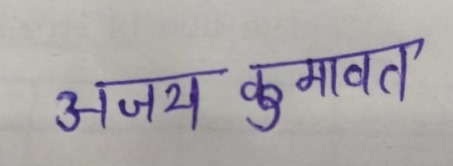 अजय कुमावत